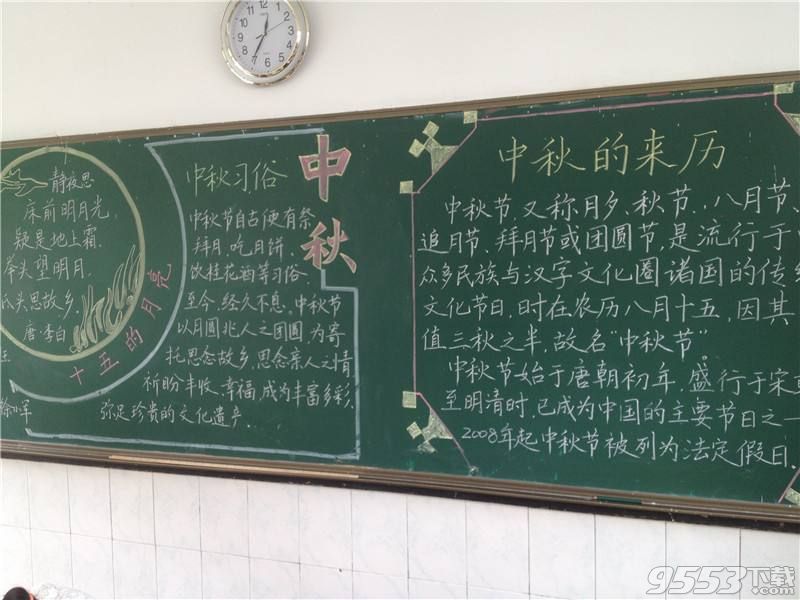 静夜思
床前明月光,
疑是地上霜.
举头望明月.
氐头思故乡.
唐:李白
十五的月亮
中秋习俗
中秋节自古便有祭
拜月、吃月饼、
饮桂花酒等习俗,
至今,经久不息。中秋节
以月圆兆人之团圆,为寄
托思念故乡,思念亲人之情
祈盼丰收、幸福,成为丰富多彩、
弥足珍贵的文化遗产.
中秋
中秋的来历
中秋节,又称月夕、秋节、八月节、
追月节、拜月节或团圆节,是流行于
众多民族与汉字文化圈诸国的传统
文化节日,时在农历八月十五,因其
值三秋之半,故名“中秋节”。
中秋节始于唐朝初年,盛行于宋
至明清时,已成为中国的主要节日之一
2008年起中秋节被列为法定假日.
9553下载
.com